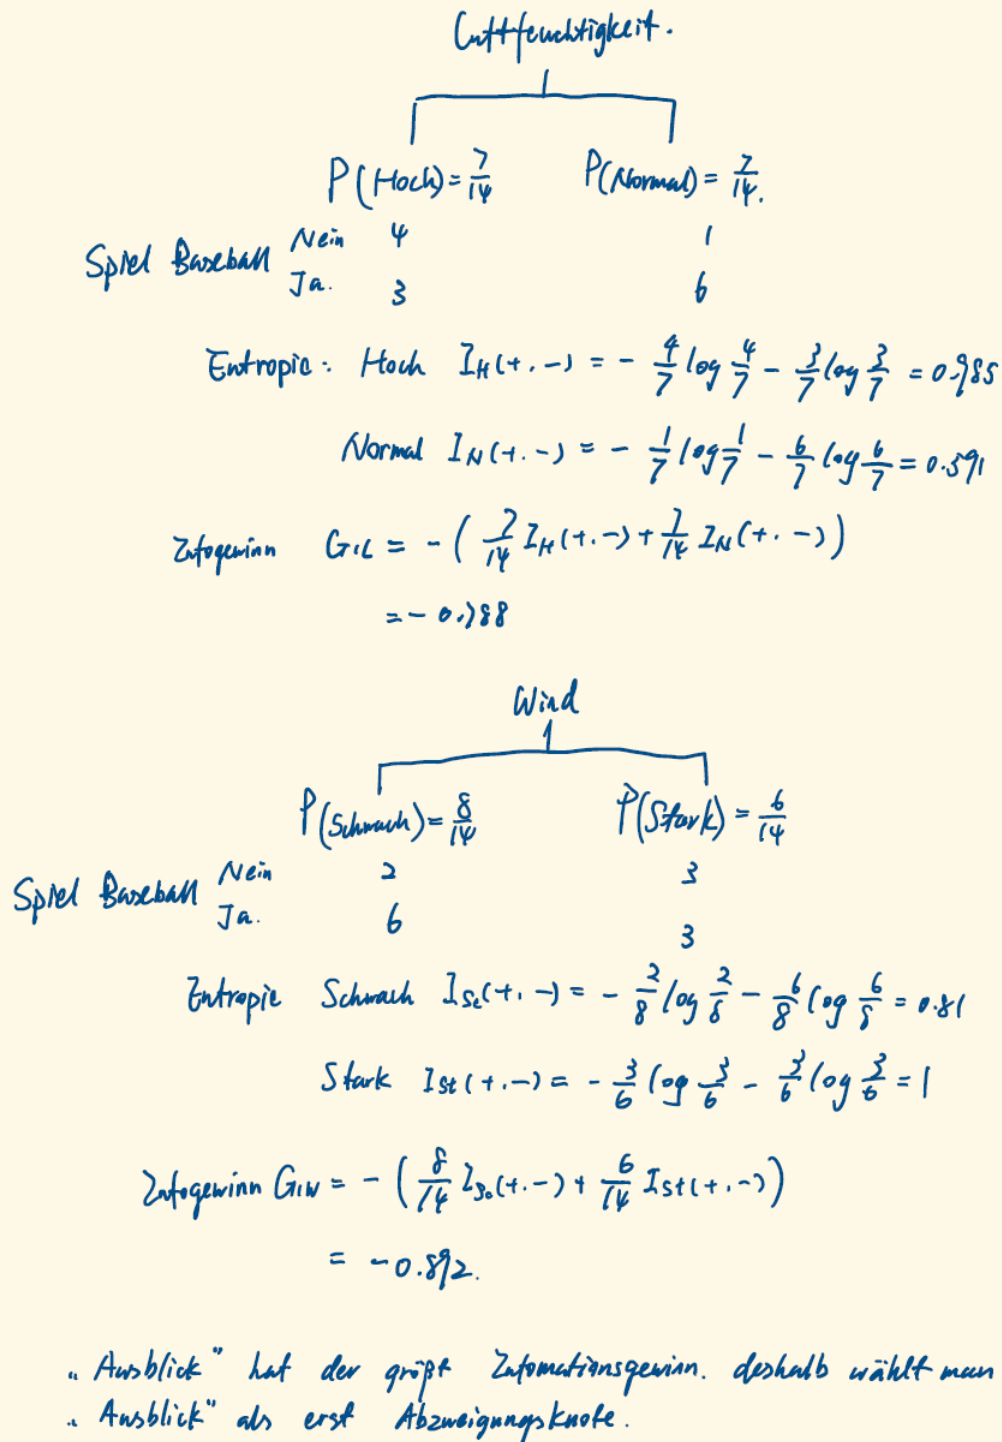 Luftfeuchtigkeit.
P(Hoch) = 7/14 P(Normal) = 7/14.
Spiel Baseball Nein 4 1
Ja. 3 6
Entropie: Hoch I_H(+,-) = - 4/7 log 4/7 - 3/7 log 3/7 = 0.985
Normal I_N(+,-) = - 1/7 log 1/7 - 6/7 log 6/7 = 0.591
Infogewinn G_{IL} = - ( 7/14 I_H(+,-) + 7/14 I_N(+,-) )
= - 0.788
Wind
P(Schwach) = 8/14 P(Stark) = 6/14
Spiel Baseball Nein 2 3
Ja. 6 3
Entropie Schwach I_{Sc}(+,-) = - 2/8 log 2/8 - 6/8 log 6/8 = 0.81
Stark I_{St}(+,-) = - 3/6 log 3/6 - 3/6 log 3/6 = 1
Infogewinn G_{IW} = - ( 8/14 I_{Sc}(+,-) + 6/14 I_{St}(+,-) )
= - 0.892.
„Ausblick" hat der größt Infomationsgewinn. deshalb wählt man
„Ausblick" als erst Abzweigungsknote.